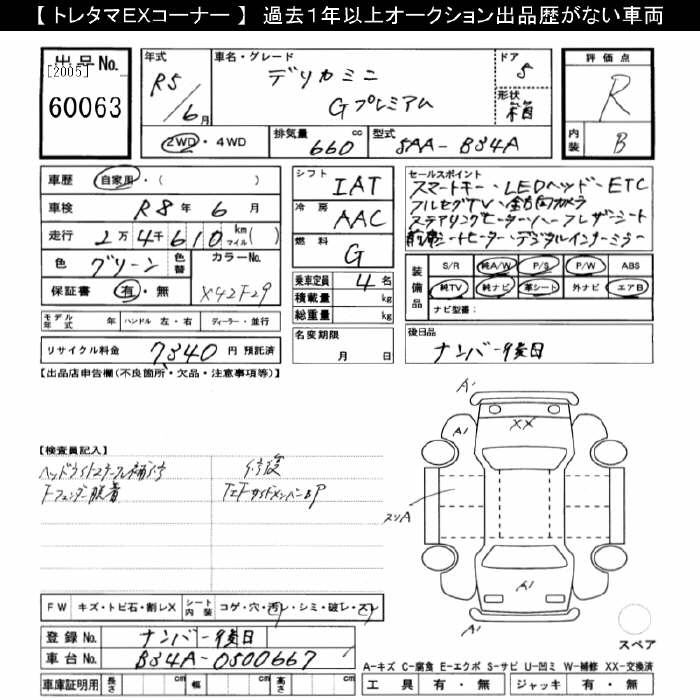 【 トレタマEXコーナー 】 過去１年以上オークション出品歴がない車両
出品No.
[2005]
60063
年式
R5/6月
車名・グレード
デリカミニ
Gプレミアム
ドア
5
形状
箱
2WD・4WD
排気量 660 cc
型式 5AA-B34A
評価点
R
内装 B
車歴 自家用・( )
車検 R8年 6月
走行 2万4千610 km マイル( )
色 グリーン 色替
カラーNo. X42F29
保証書 有・無
モデル年式 年 ハンドル 左・右 ディーラー・並行
リサイクル料金 7340円 預託済
シフト IAT
冷房 AAC
燃料 G
乗車定員 4名
積載量 kg
総重量 kg
名変期限
月 日
セールスポイント
スマートキー・LEDヘッド・ETC
フルセグTV・全方向カメラ
ステアリングヒーター・ハーフレザーシート
前席シートヒーター・デジタルインナーミラー
装備品
S/R 純A/W P/S P/W ABS
純TV 純ナビ 革シート 外ナビ エアB
ナビ型番：
後日品
ナンバー後日
【出品店申告欄(不良箇所・欠品・注意事項等)】
【検査員記入】
ヘッドライトステー フル補修
Fフェンダー脱着
修復
A1
A1
XX
スリA
A1
A1
スペア
FW キズ・トビ石・割レX シート内装 コゲ・穴・汚レ・シミ・破レ・スレ
登録No. ナンバー後日
車台No. B34A-0500667
車庫証明用 長さ cm 幅 cm 高さ cm
A-キズ C-腐食 E-エクボ S-サビ U-凹ミ W-補修 XX-交換済
工具 有・無 ジャッキ 有・無